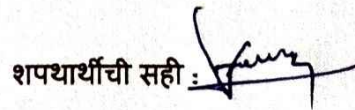 शपथार्थीची सही :